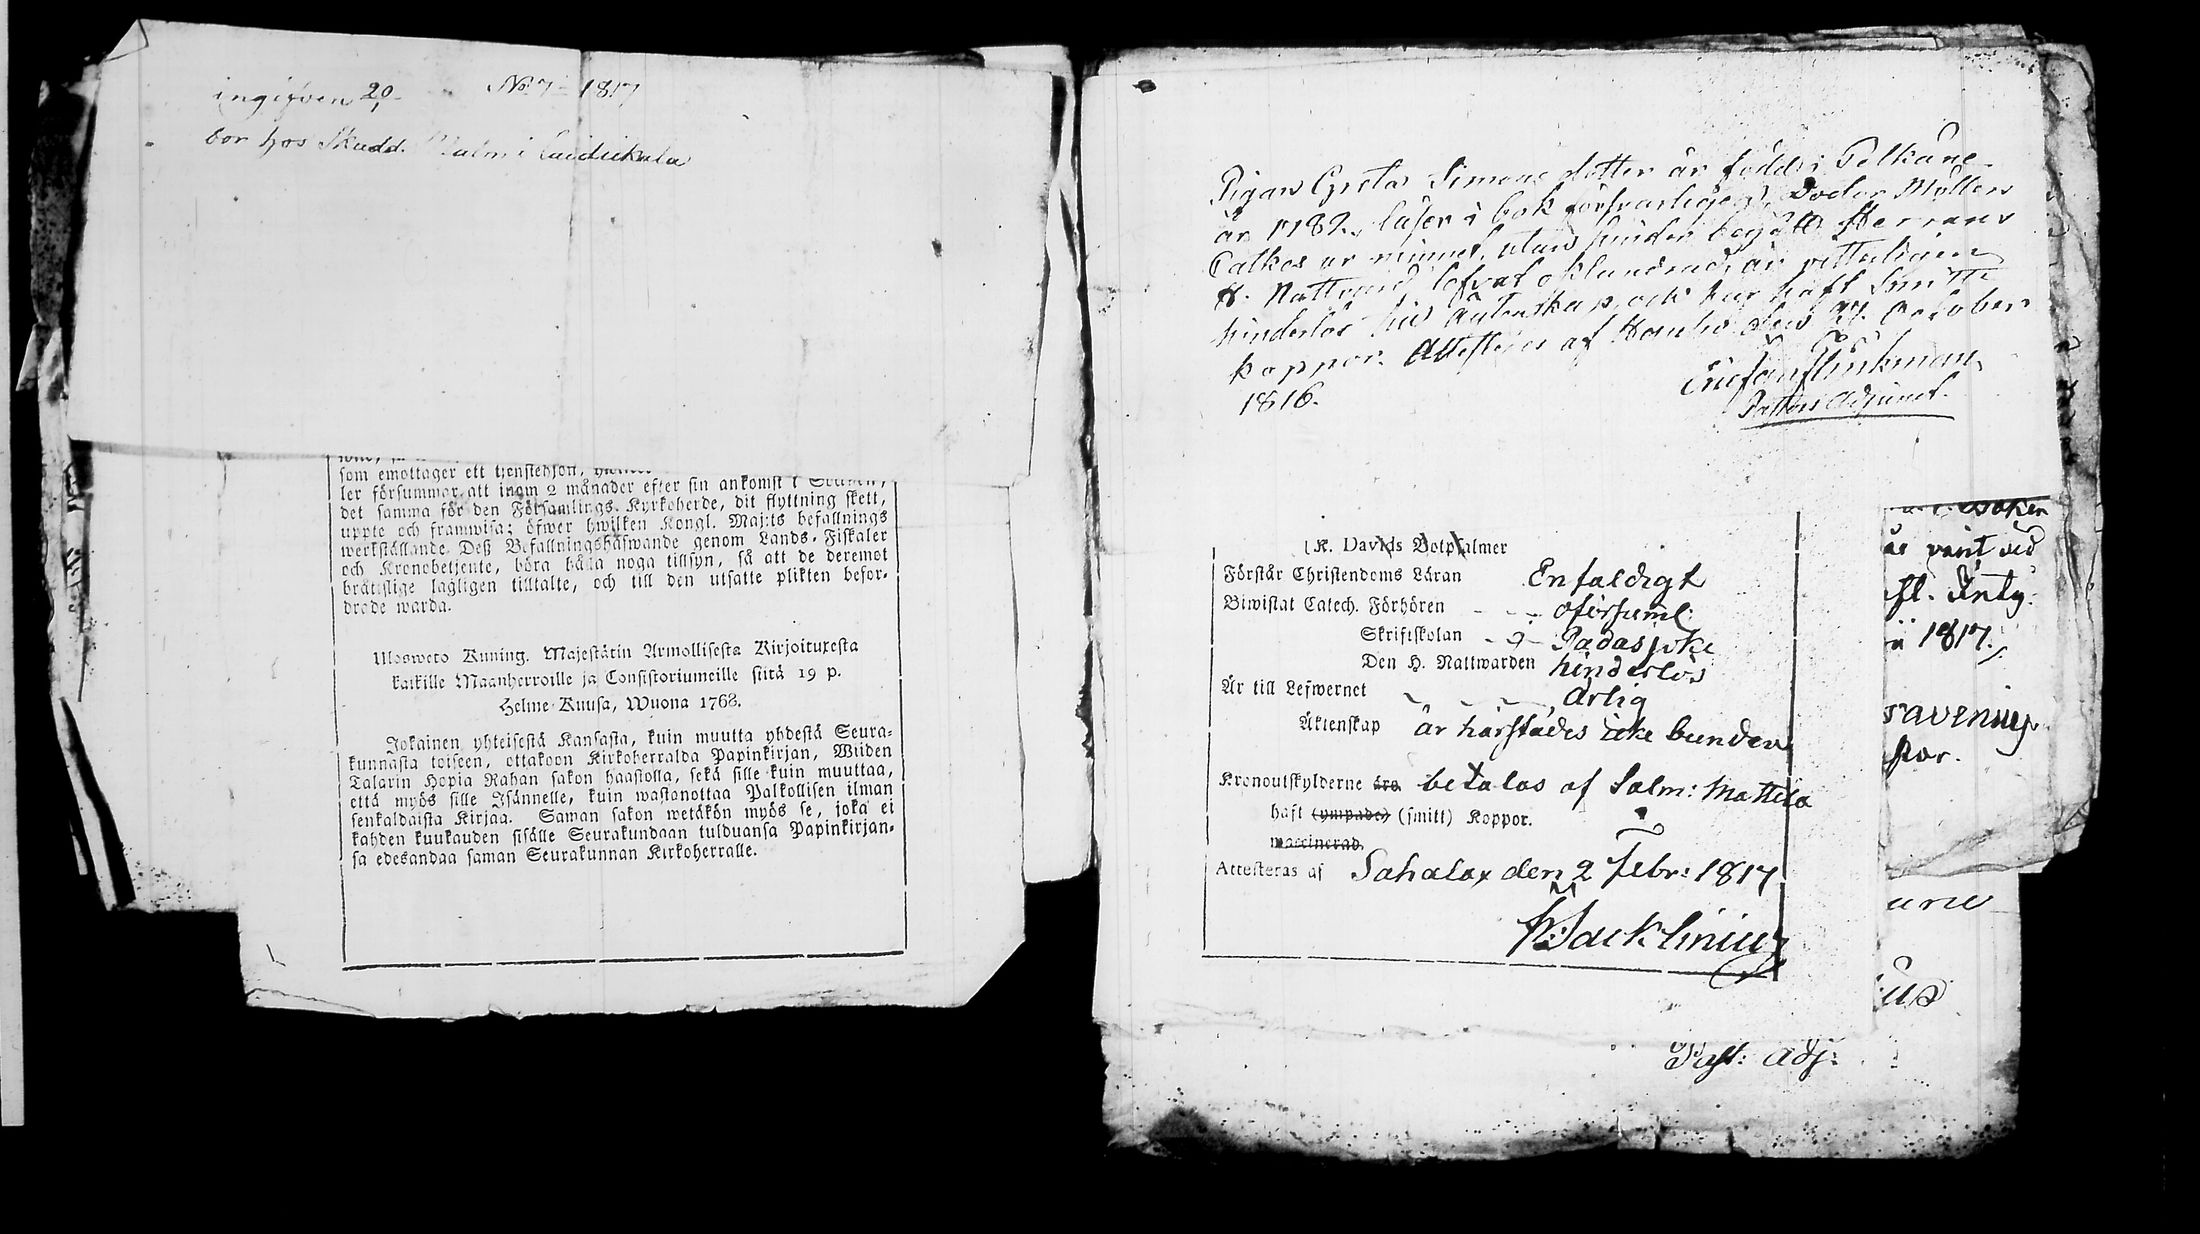 ingifven 20
No 7 - 1817
bor hos Skudd. Malm i
som emottager ett tjenstehjon,
ler försummar att inom 2 månader efter sin ankomst i Socknen,
det samma för den Församlings Kyrkoherde, dit flyttning skett,
uppte och framwisa; öfwer hwilken Kongl. Maj:ts befallnings
werkställande Deß Befallningshafwande genom Lands-Fiskaler
och Kronobetjente, böra hålla noga tillsyn, så att de deremot
bråttslige lagligen tilltalte, och till den utsatte plikten befor-
drade warda.
Ulosweto Kuning. Majestätin Armollisesta Kirjoituxesta
kaikille Maanherroille ja Consistoriumeille siitä 19 p.
Helme-Kuusa, Wuona 1768.
Jokainen yhteisestä Kansasta, kuin muutta yhdestä Seura-
kunnasta toiseen, ottakoon Kirkoherralda Papinkirjan, Wiiden
Talarin Hopia Rahan sakon haastolla, sekä sille kuin muuttaa,
että myös sille Isännelle, kuin wastanottaa Palkollisen ilman
senkaldaista Kirjaa. Saman sakon wetäkön myös se, joka ei
kahden kuukauden sisälle Seurakundaan tulduansa Papinkirjan-
sa edesandaa saman Seurakunnan Kirkoherralle.
Pigan Greta Simons dotter är född i Pelkäne
år 1782, läser i bok försvarligen, Doctor Möllers
Catkes ur minnet, utan hinder begått Herrans
H. Nattvard, lefvat oklandrad, är vitterligen
hinderlös till Äktenskap, och har haft Smitt
koppor. Attesteras af Hauho den 27. October
1816.
Pastors Adjunct.
K. Davids Botpsalmer
Förstår Christendoms Läran Enfaldigt
Biwistat Catech. Förhören oförsuml:
Skriftskolan i Padasjoki
Den H. Nattwarden hinderlös
Är till Lefwernet Ärlig
Äktenskap är härstädes icke bunden
Kronoutskylderne äro betalas af Salm: Mattila
haft (ympade) (smitt) Koppor.
waccinerad.
Attesteras af Sahalax den 2 Febr: 1817
Socken
är vänt vid
1817.
une
us
Past: Adj: